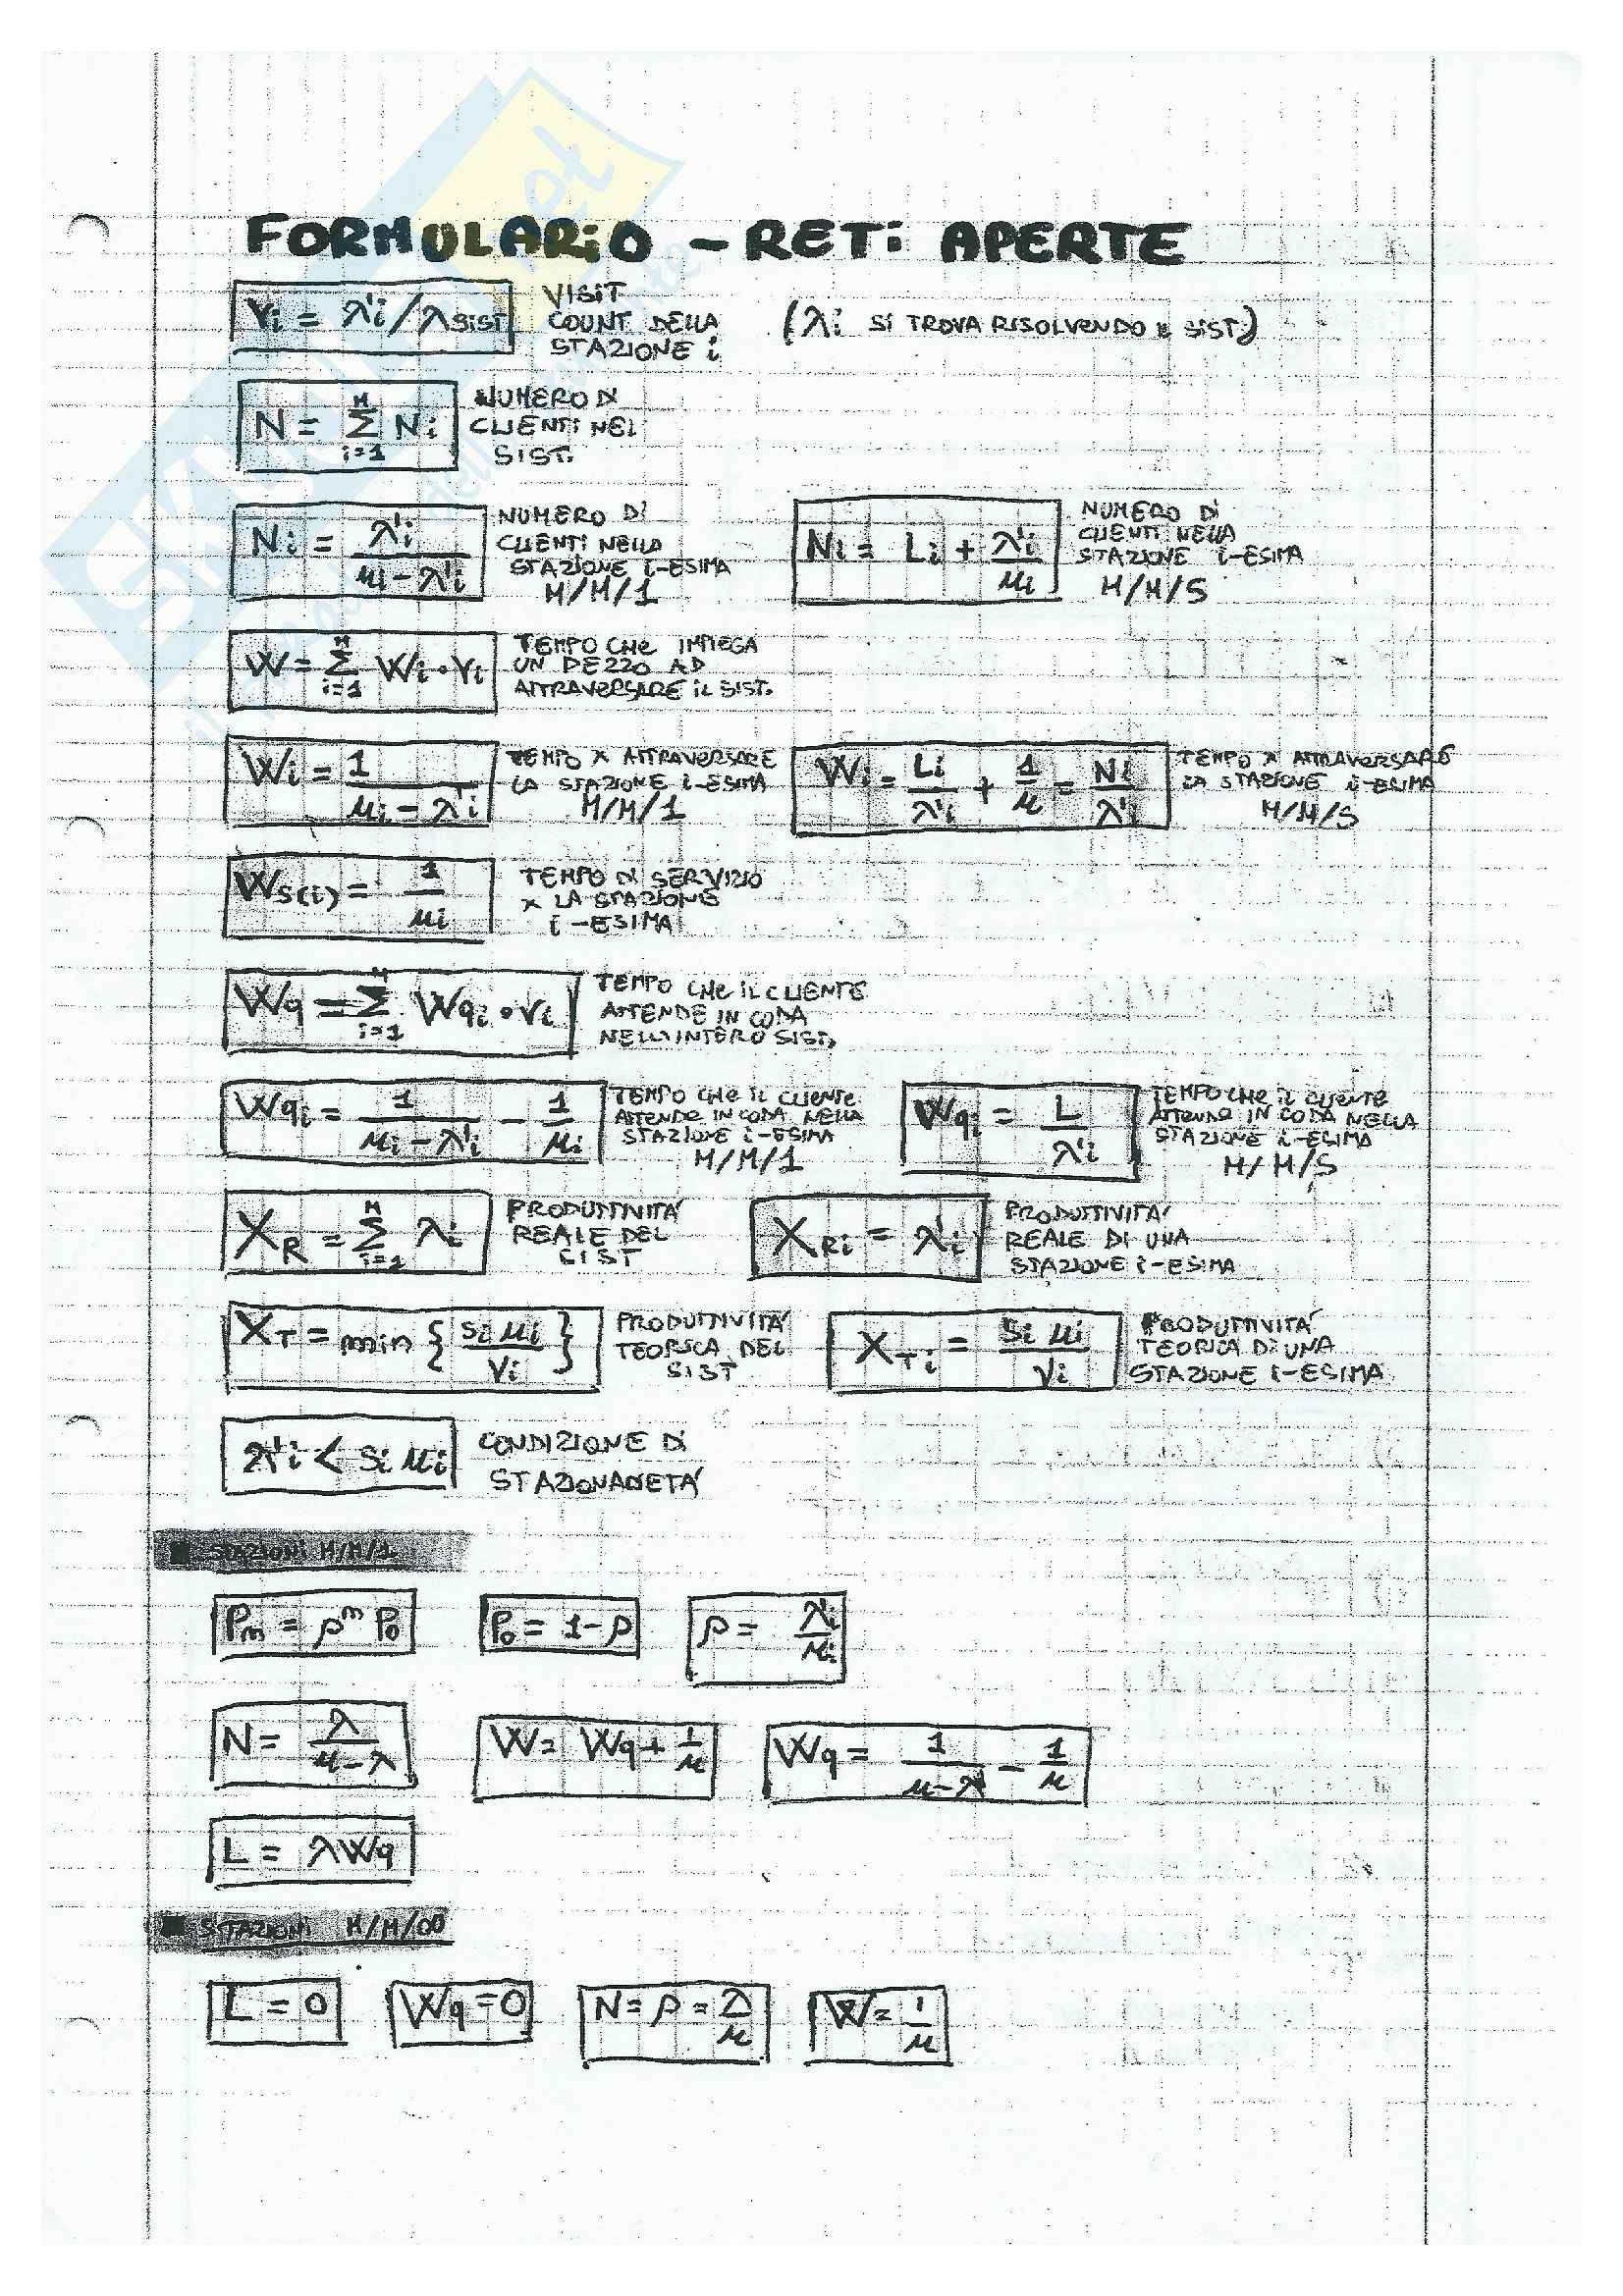 FORMULARIO - RETI APERTE
Vi = λ'i / λSIST VISIT COUNT DELLA STAZIONE i (λ'i SI TROVA RISOLVENDO IL SIST.)
N = Σ(i=1..M) Ni NUMERO DI CLIENTI NEL SIST.
Ni = λ'i / (μi - λ'i) NUMERO DI CLIENTI NELLA STAZIONE i-ESIMA M/M/1
Ni = Li + λ'i/μi NUMERO DI CLIENTI NELLA STAZIONE i-ESIMA M/M/S
W = Σ(i=1..M) Wi · Vi TEMPO CHE IMPIEGA UN PEZZO AD ATTRAVERSARE IL SIST.
Wi = 1 / (μi - λ'i) TEMPO X ATTRAVERSARE LA STAZIONE i-ESIMA M/M/1
Wi = Li/λ'i + 1/μ = Ni/λ'i TEMPO X ATTRAVERSARE LA STAZIONE i-ESIMA M/M/S
WS(i) = 1/μi TEMPO DI SERVIZIO X LA STAZIONE i-ESIMA
Wq = Σ(i=1..M) Wqi · Vi TEMPO CHE IL CLIENTE ATTENDE IN CODA NELL'INTERO SIST.
Wqi = 1/(μi - λ'i) - 1/μi TEMPO CHE IL CLIENTE ATTENDE IN CODA NELLA STAZIONE i-ESIMA M/M/1
Wqi = L/λ'i TEMPO CHE IL CLIENTE ATTENDE IN CODA NELLA STAZIONE i-ESIMA M/M/S
XR = Σ(i=1..M) λi PRODUTTIVITA' REALE DEL SIST
XRi = λ'i PRODUTTIVITA' REALE DI UNA STAZIONE i-ESIMA
XT = min { Si μi / Vi } PRODUTTIVITA' TEORICA DEL SIST
XTi = Si μi / Vi PRODUTTIVITA' TEORICA DI UNA STAZIONE i-ESIMA
λ'i < Si μi CONDIZIONE DI STAZIONARIETA'
■ STAZIONI M/M/1
Pm = ρ^m P0 P0 = 1-ρ ρ = λ'i/μi
N = λ/(μ-λ) W = Wq + 1/μ Wq = 1/(μ-λ) - 1/μ
L = λWq
■ STAZIONI M/M/∞
L = 0 Wq = 0 N = ρ = λ/μ W = 1/μ